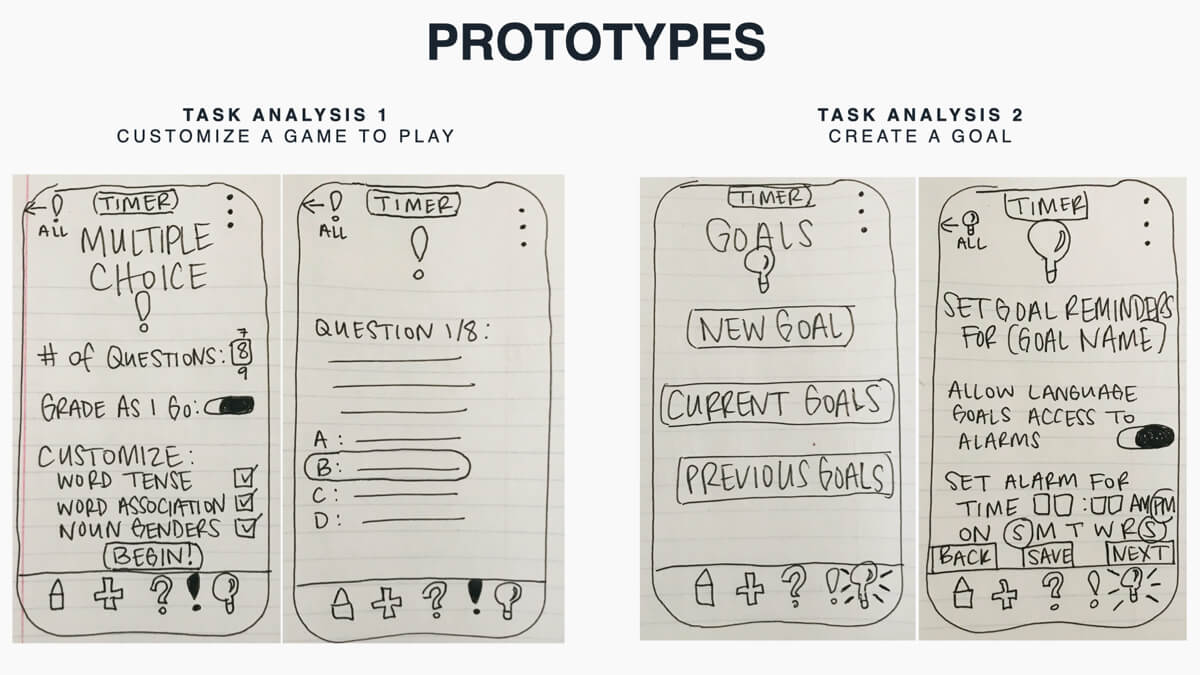 PROTOTYPES
TASK ANALYSIS 1
CUSTOMIZE A GAME TO PLAY
TASK ANALYSIS 2
CREATE A GOAL
TIMER
ALL
MULTIPLE
CHOICE
# of QUESTIONS:
7
8
9
GRADE AS I GO:
CUSTOMIZE:
WORD TENSE
WORD ASSOCIATION
NOUN GENDERS
BEGIN!
TIMER
ALL
QUESTION 1/8:
A:
B:
C:
D:
TIMER
GOALS
NEW GOAL
CURRENT GOALS
PREVIOUS GOALS
TIMER
ALL
SET GOAL REMINDERS
FOR (GOAL NAME)
ALLOW LANGUAGE
GOALS ACCESS TO
ALARMS
SET ALARM FOR
TIME : AM PM
ON S M T W R S
BACK SAVE NEXT